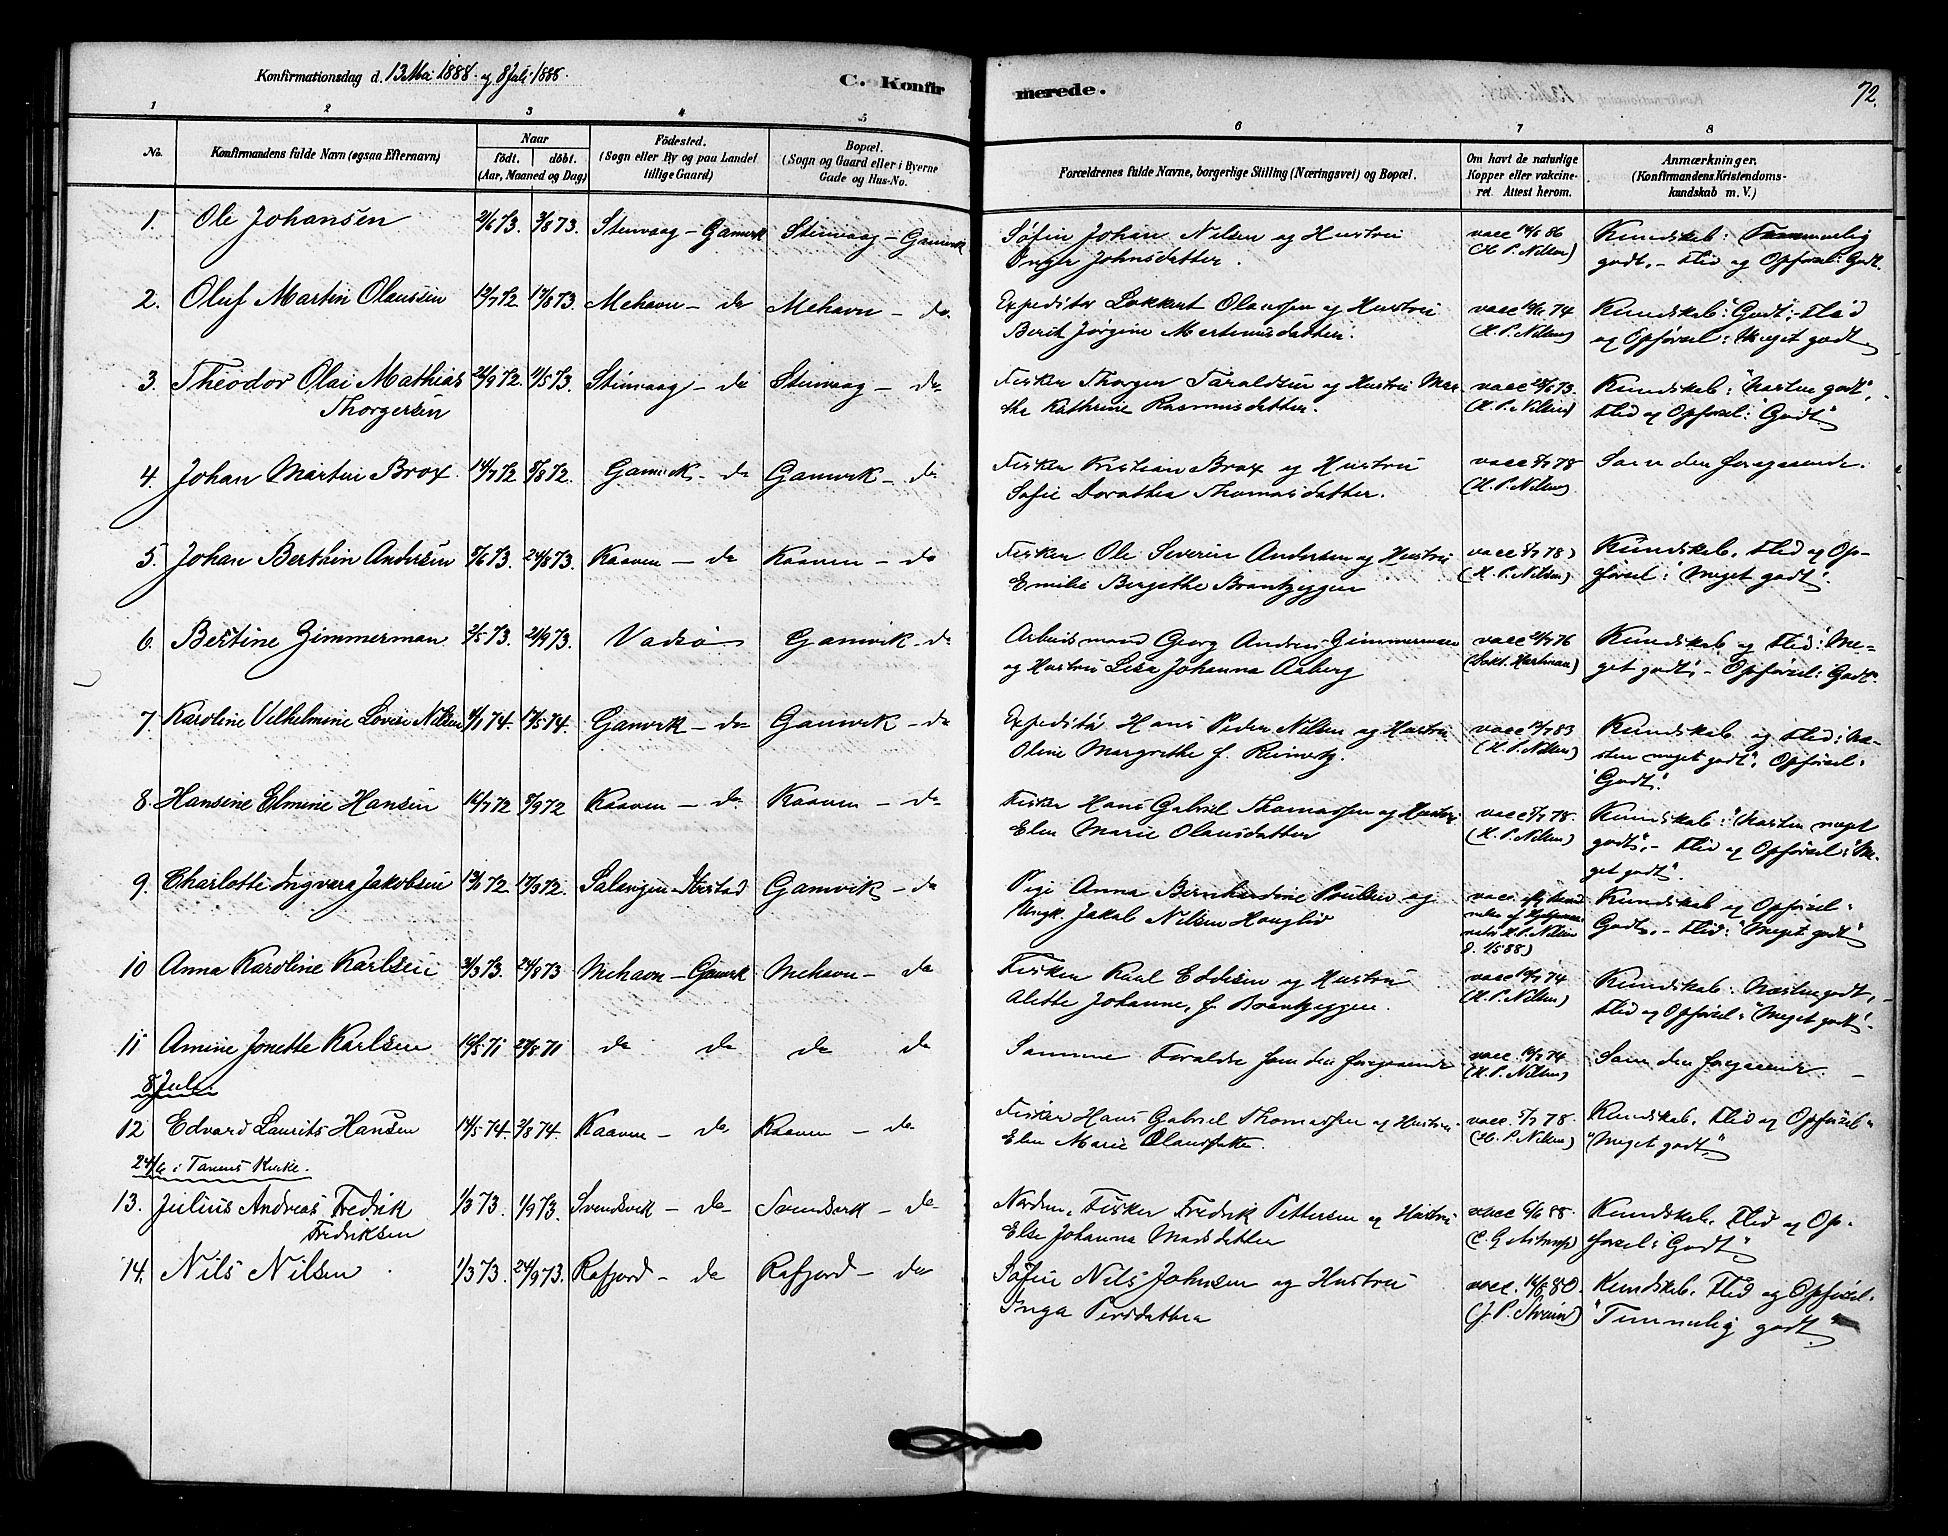 Konfirmationsdag d. 13 Mai 1888 og 8 Juli 1888.
C. Konfir
merede.
72.
1 2 3 4 5 6 7 8
No.
Konfirmandens fulde Navn (ogsaa Efternavn)
Naar
födt. döbt.
(Aar, Maaned og Dag)
Födested.
(Sogn eller By og paa Landet
tillige Gaard)
Bopæl.
(Sogn og Gaard eller i Byerne
Gade og Hus-No.
Forældrenes fulde Navne, borgerlige Stilling (Næringsvei) og Bopæl.
Om havt de naturlige
Kopper eller vakcine-
ret. Attest herom.
Anmærkninger.
(Konfirmandens Kristendoms-
kundskab m. V.)
1. Ole Johansen 21/6 73. 3/8 73. Steinvaag – Gamvik Steinvaag – Gamvik Søfin Johan Nilsen og Hustru vacc 86 Kundskab: Temmelig
Inger Johnsdatter. (H. P. Nilsen) godt, – Flid og Opførsel: Godt.
2. Oluf Martin Olaussen 19/7 72 17/8 73. Mehavn – do Mehavn – do. Expeditør Lokkert Olaussen og Hustru vacc 74 Kundskab: "Godt", – Flid
Berit Jørgine Mortensdatter. (H. P. Nilsen) og Opførsel: Meget godt.
3. Theodor Olai Mathias 26/9 72. 11/5 73. Steinvaag – do Steinvaag – do Fisker Thorger Taraldsen og Hustru Mar- vacc 73. Kundskab: "Næsten godt",
Thorgersen the Kathrine Rasmusdatter. (H. P. Nilsen) Flid og Opførsel: "Godt"
4. Johan Martin Brox. 14/7 72 5/8 72. Gamvik – do Gamvik – do Fisker Kristian Brox og Hustru vacc 5/7 78 Som den foregaaende.
Sofie Dorathea Thomasdatter. (H. P. Nilsen)
5. Johan Berthin Andersen 5/6 73. 24/8 73. Kaaven – do Kaaven – do Fisker Ole Severin Andersen og Hustru vacc 5/7 78 Kundskab, Flid og Op-
Emilie Bergithe Brantzeggen (H. P. Nilsen) førsel: "Meget godt".
6. Bertine Zimmerman 3/5 73. 21/9 73. Vadsø Gamvik – do Arbeidsmand Georg Andreas Zimmerman vacc 76 Kundskab og Flid: "Me-
og Hustru Lisa Johanna Aaberg (Hartman) get godt", – Opførsel: Godt.
7. Karoline Vilhelmine Lovise Nilsen 4/1 74. 17/5 74. Gamvik – do Gamvik – do Expeditør Hans Peder Nilsen og Hustru vacc 83 Kundskab og Flid: "Næ-
Oline Margrethe f. (H. P. Nilsen) sten meget godt", Opførsel:
"Godt".
8. Hansine Elmine Hansen 16/7 72 9/9 72 Kaaven – do. Kaaven – do Fisker Hans Gabriel Thomassen og Hustru vacc 5/7 78. Kundskab: "Næsten meget
Elen Marie Olausdatter (H. P. Nilsen) godt", – Flid og Opførsel: "Me-
get godt".
9. Charlotte Ingvara Jakobsen 72 17/3 72. Salangen – Gamvik – do Pige Anna Bernhardine Poulsen og vacc. Kundskab og Opførsel:
Ungk. Jakob Nilsen H. P. Nilsen Godt, – Flid: "Meget godt"
d. 1/5 88)
10 Anna Karoline Karlsen 3/3 73. 24/8 73 Mehavn – Gamvik Mehavn – do Fisker Karl Eddesen og Hustru vacc 74 Kundskab: Næsten godt, –
Alette Johanne, f. Brantzeggen. (H. P. Nilsen) Flid og Opførsel: "Meget godt".
11 Amine Jonette Karlsen 16/5 71 27/8 71 do do do do Samme Foraldre som den foregaaende vacc 74 Som den foregaaende.
(H. P. Nilsen)
8 Juli
12 Edvard Laurits Hansen 14/5 74. 2/8 74. Kaaven – do Kaaven – do Fisker Hans Gabriel Thomassen og Hustru vacc. 5/7 78. Kundskab, Flid og Opførsel:
Elen Marie Olausdatter. (H. P. Nilsen) "Meget godt".
24/6 i Tanens Kirke.
13. Julius Andreas Fredrik 1/3 73. 1/9 73. Svendsvik – do Svendsvik – do Nordm. Fisker Fredrik Pettersen og Hustru vacc 88. Kundskab, Flid og Op-
Fredriksen Else Johanna Madsdatter førsel: Godt".
14. Nils Nilsen 1/3 73. 24/9 73. Rafjord – do Rafjord – do Søfin Nils Johnsen og Hustru vacc. 80. Kundskab, Flid og Opførsel:
Inga Persdatter "Temmelig godt".